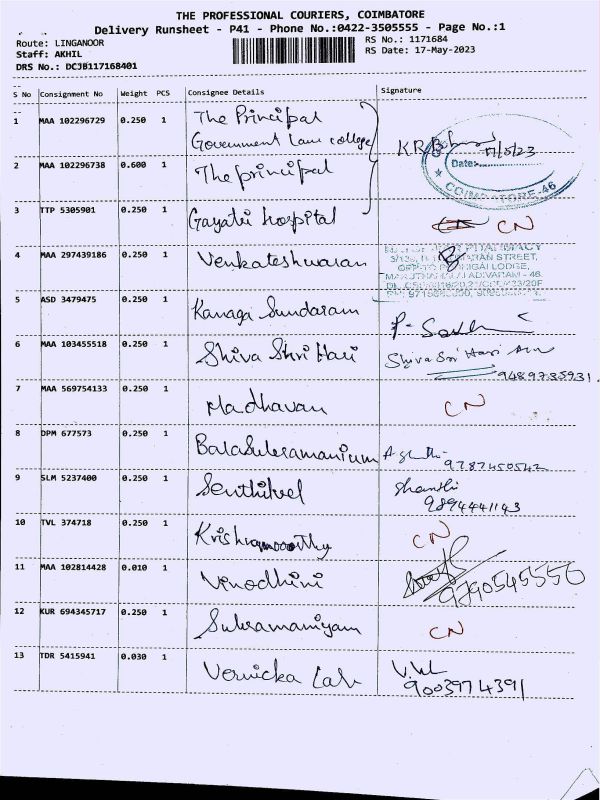 THE PROFESSIONAL COURIERS, COIMBATORE
Delivery Runsheet - P41 - Phone No.:0422-3505555 - Page No.:1
Route: LINGANOOR RS No.: 1171684
Staff: AKHIL RS Date: 17-May-2023
DRS No.: DCJB117168401
S No Consignment No Weight PCS Consignee Details Signature
1 MAA 102296729 0.250 1 The Principal
Government Law college
17/5/23
2 MAA 102296738 0.600 1 The principal
Date:
COIMBATORE-46
3 TTP 5305901 0.250 1 Gayatri hospital CN
4 MAA 297439186 0.250 1 Venkateshwaran
5 ASD 3479475 0.250 1 Kanaga Sundaram
6 MAA 103455518 0.250 1 Shiva Shri Hari Shiva Sri Hari
9489735931
7 MAA 569754133 0.250 1 Madhavan CN
8 DPM 677573 0.250 1 BalaSubramanium
9787450542
9 SLM 5237400 0.250 1 Senthilvel Shanthi
9894441143
10 TVL 374718 0.250 1 Krishnamoorthy CN
11 MAA 102814428 0.010 1 Vinodhini
9790545556
12 KUR 694345717 0.250 1 Subramaniyam CN
13 TDR 5415941 0.030 1 Vernicka Lab
9003974391